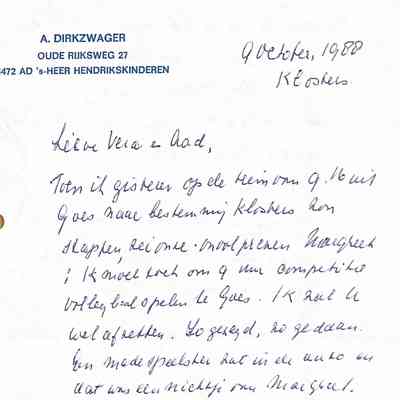 A. DIRKZWAGER
OUDE RIJKSWEG 27
4472 AD 's-HEER HENDRIKSKINDEREN
9 October, 1988
Klosters
Lieve Vera en Aad,
Toen ik gisteren op de trein van 9.16 uit
Goes naar bestemming Klosters kon
stappen, zei onze Margreet
: Ik moet toch om 9 uur competitie
volleybal spelen te Goes. Ik zal U
wel afzetten. Zo gezegd, zo gedaan.
Een medespeelster zat in de auto en
dat was een nichtje van